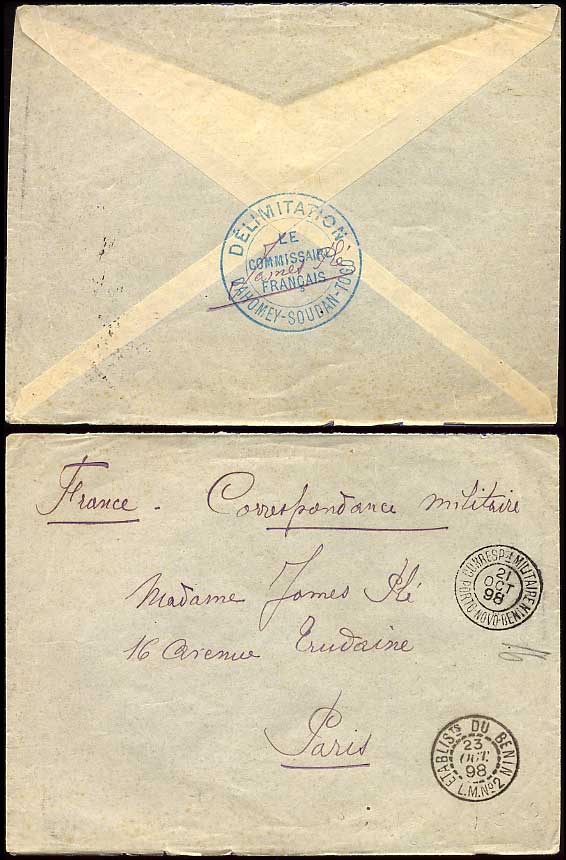 DÉLIMITATION
LE
COMMISSAIRE
FRANÇAIS
DAHOMEY-SOUDAN-TOGO
James Plé
France - Correspondance militaire
CORRESP. MILITAIRE
21
OCT
98
PORTO-NOVO-BENIN
Madame James Plé
16 avenue Trudaine
Paris
16
ETABLISTS DU BENIN
23
OCT.
98
L.M.No2